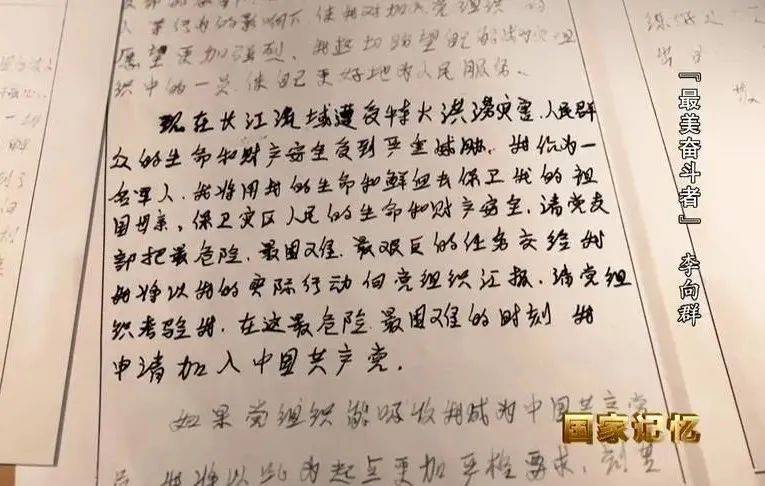 愿望更加强烈。我起切盼望自己能成为党组
织中的一员,使自己更好地为人民服务。
现在长江流域遭受特大洪涝灾害,人民群
众的生命和财产安全受到严重威胁。我作为一
名军人,我将用我的生命和鲜血去保卫我的祖
国母亲,保卫灾区人民的生命和财产安全,请党支
部把最危险、最困难、最艰巨的任务交给我
我将以我的实际行动向党组织汇报,请党组
织考验我,在这最危险、最困难的时刻 我
申请加入中国共产党。
如果党组织能吸收我成为中国共产党
员 我将以此为起点更加严格要求,刻苦
『最美奋斗者』 李向群
国家记忆